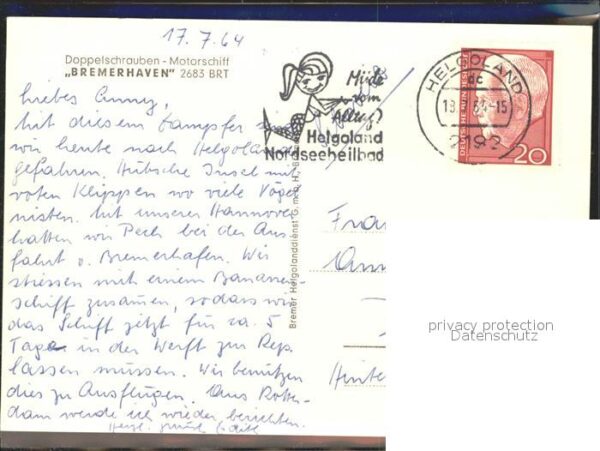 17.7.64
Doppelschrauben - Motorschiff
„BREMERHAVEN" 2683 BRT
Liebes Anny,
Mit diesem Dampfer sind
wir heute nach Helgoland
gefahren. Hübsche Insel mit
roten Klippen wo viele Vögel
nisten. Mit unserer Hannover
hatten wir Pech bei der Aus-
fahrt v. Bremerhafen. Wir
stiessen mit einem Bananen-
schiff zusamen, sodass wir
das Schiff jetzt für ca. 5
Tage in der Werft zur Rep.
lassen müssen. Wir benützen
dies zu Ausflügen. Aus Rotter-
dam werde ich wieder berichten.
Herzl.
Müde
vom
Alltag?
Helgoland
Nordseeheilbad
HELGOLAND
dc
18. 64-15
2192
DEUTSCHE BUNDESPOST
20
Bremer Helgolanddienst G.m.b.H.,
Frau
Hinter
privacy protection
Datenschutz